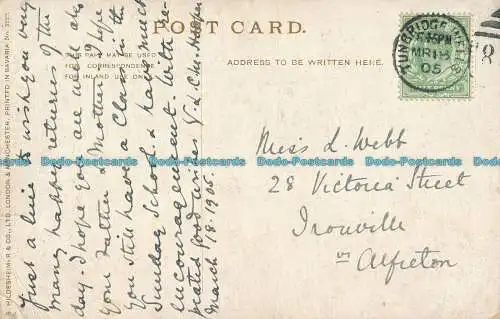 POST CARD.
THIS PART MAY BE USED
FOR CORRESPONDENCE
FOR INLAND USE ONLY
ADDRESS TO BE WRITTEN HERE.
TUNBRIDGE WELLS
PM
MR 18
05
8
HILDESHEIMER & CO., LTD. LONDON & MANCHESTER. PRINTED IN BAVARIA
Just a line to wish you very
many happy returns of the
day. I hope you are well also
your Father & Mother. I hope
you still have a Class in the
Sunday School & have much
encouragement. With re-
peated good wishes
March 18. 1905
Miss L. Webb
28 Victoria Street
Ironville
Alfreton
Dodo-Postcards